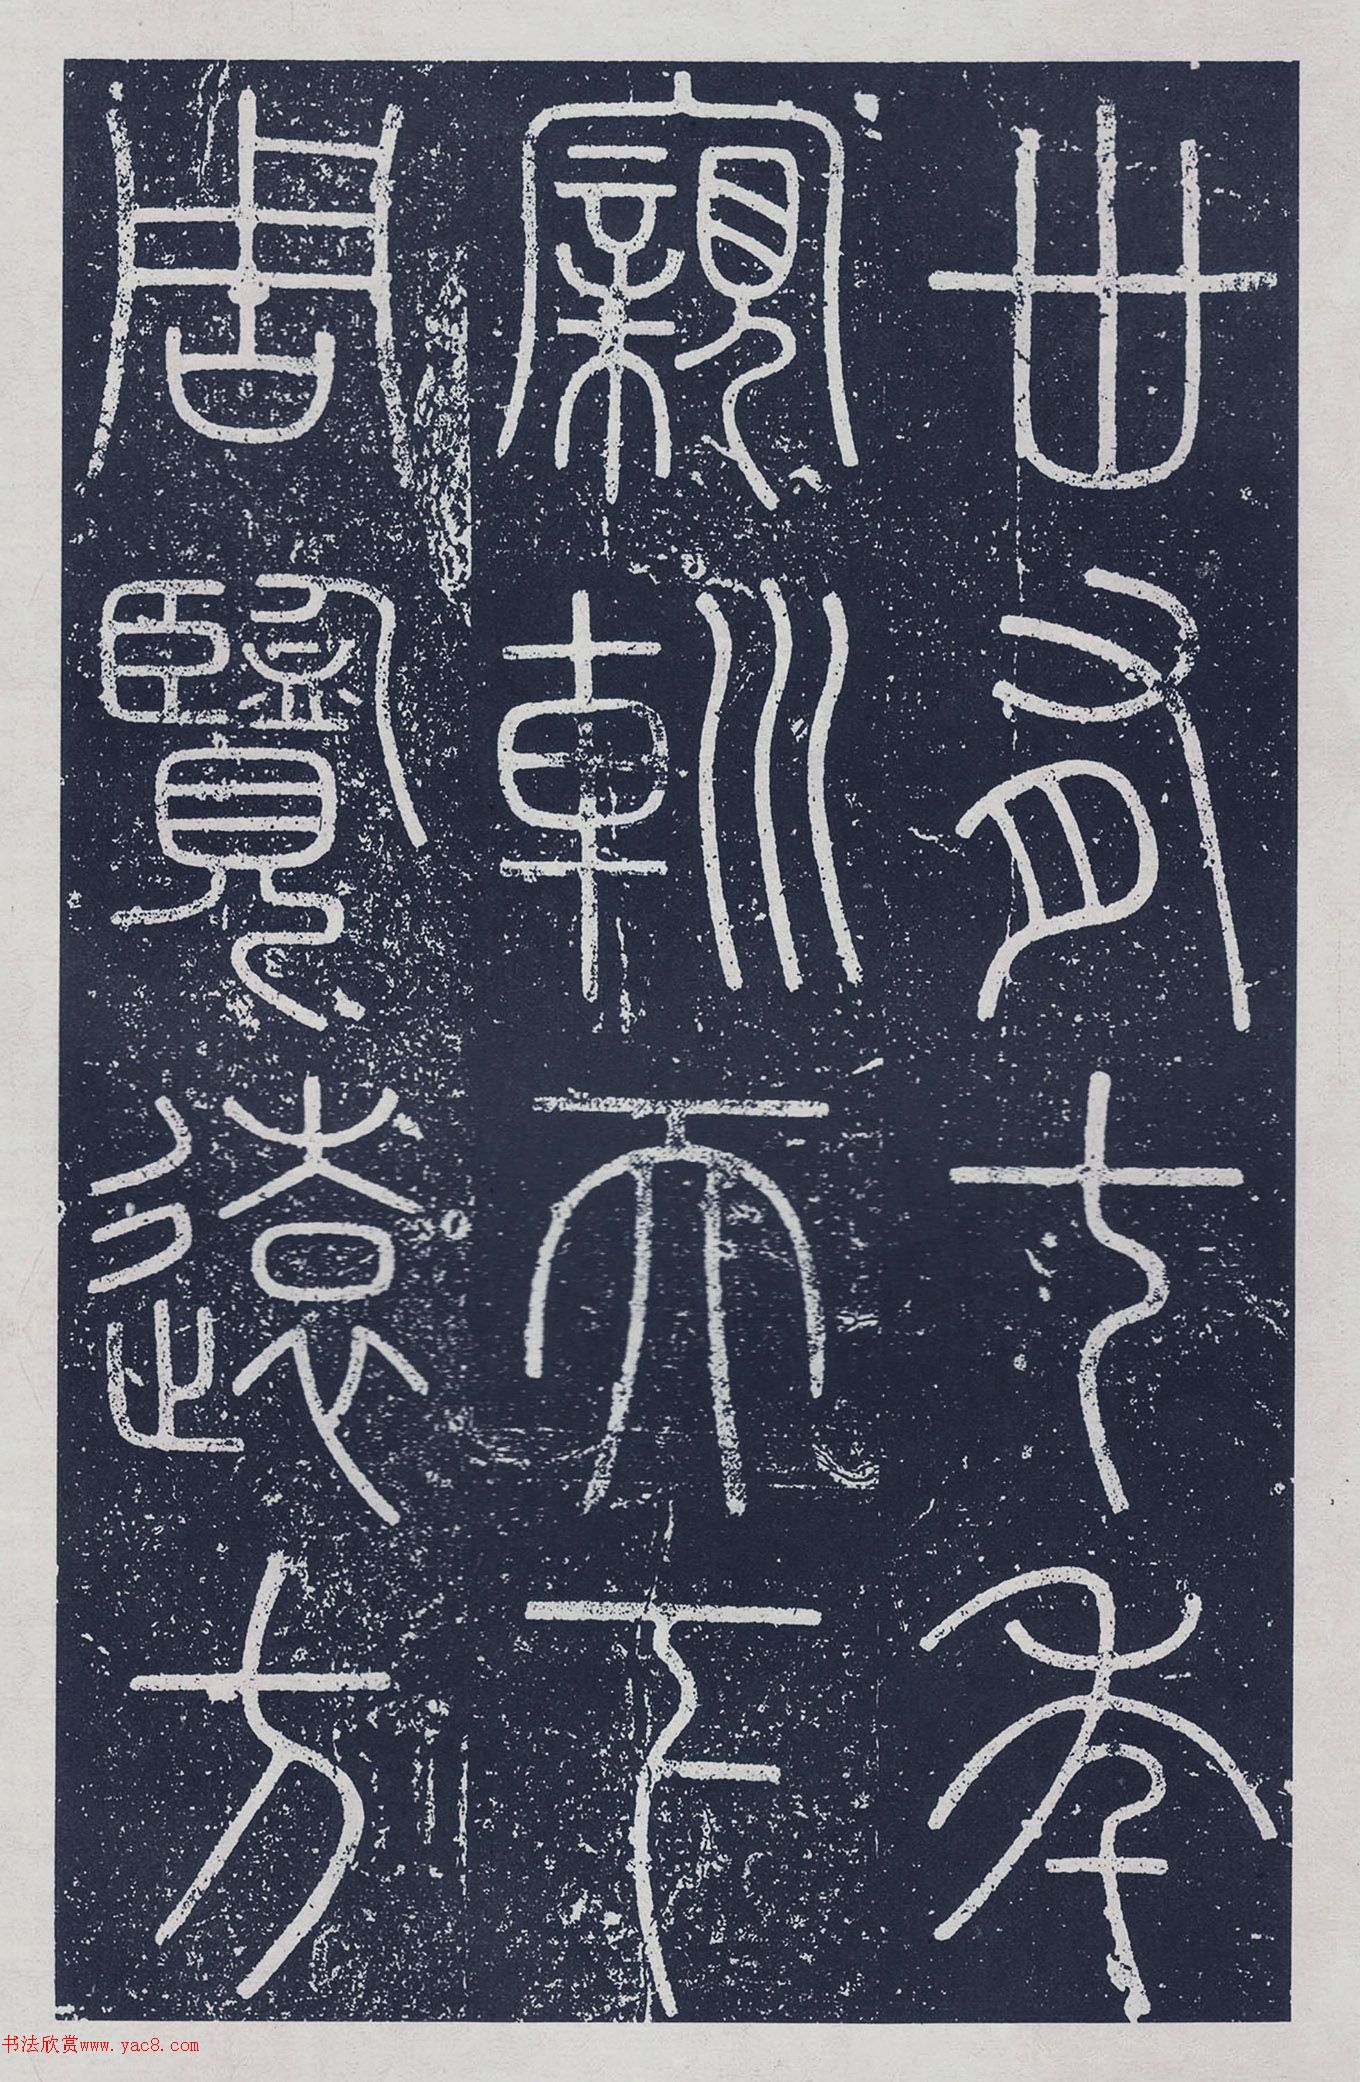 廿有七年
寴𨋎天下
周覽遠方
书法欣赏www.yac8.com